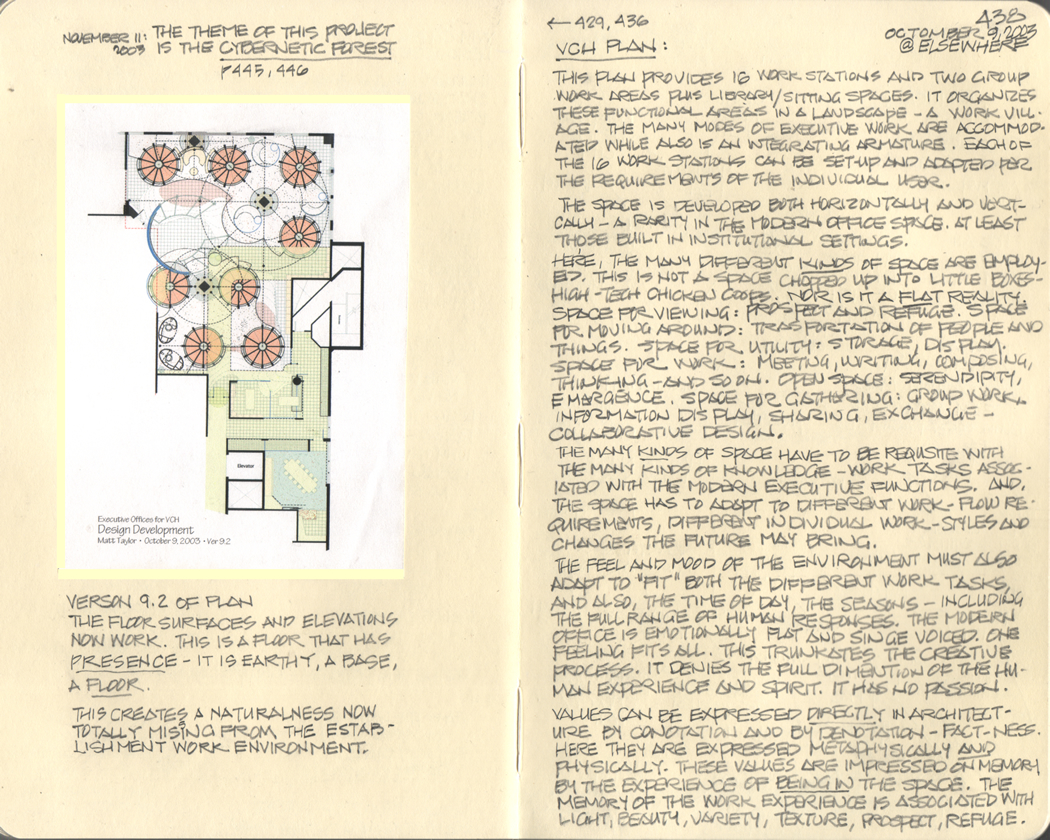 NOVEMBER 11: THE THEME OF THIS PROJECT
2003 IS THE CYBERNETIC FOREST
P445, 446
Elevator
Executive Offices for VCH
Design Development
Matt Taylor • October 9, 2003 • Ver 9.2
VERSON 9.2 OF PLAN
THE FLOOR SURFACES AND ELEVATIONS
NOW WORK. THIS IS A FLOOR THAT HAS
PRESENCE - IT IS EARTHY, A BASE,
A FLOOR.
THIS CREATES A NATURALNESS NOW
TOTALLY MISING FROM THE ESTAB-
LISHMENT WORK ENVIRONMENT.
← 429, 436
438
OCTOMBER 9, 2003
@ ELSEWHERE
VCH PLAN:
THIS PLAN PROVIDES 16 WORK STATIONS AND TWO GROUP
WORK AREAS PLUS LIBRARY/SITTING SPACES. IT ORGANIZES
THESE FUNCTIONAL AREAS IN A LANDSCAPE - A WORK VILL-
AGE. THE MANY MODES OF EXECUTIVE WORK ARE ACCOMMOD-
ATED WHILE ALSO IS AN INTEGRATING ARMATURE. EACH OF
THE 16 WORK STATIONS CAN BE SET-UP AND ADAPTED FOR
THE REQUIREMENTS OF THE INDIVIDUAL USER.
THE SPACE IS DEVELOPED BOTH HORIZONTALLY AND VERT-
CALLY - A RARITY IN THE MODERN OFFICE SPACE. AT LEAST
THOSE BUILT IN INSTITUTIONAL SETTINGS.
HERE, THE MANY DIFFERENT KINDS OF SPACE ARE EMPLOY-
ED. THIS IS NOT A SPACE CHOPPED UP INTO LITTLE BOXES-
HIGH-TECH CHICKEN COOPS. NOR IS IT A FLAT REALITY.
SPACE FOR VIEWING: PROSPECT AND REFUGE. SPACE
FOR MOVING AROUND: TRASPORTATION OF PEOPLE AND
THINGS. SPACE FOR UTILITY: STORAGE, DISPLAY.
SPACE FOR WORK: MEETING, WRITING, COMPOSING,
THINKING - AND SO ON. OPEN SPACE: SERENDIPITY,
EMERGENCE. SPACE FOR GATHERING: GROUP WORK,
INFORMATION DISPLAY, SHARING, EXCHANGE -
COLLABORATIVE DESIGN.
THE MANY KINDS OF SPACE HAVE TO BE REQUISITE WITH
THE MANY KINDS OF KNOWLEDGE - WORK TASKS ASSOC-
IATED WITH THE MODERN EXECUTIVE FUNCTIONS. AND,
THE SPACE HAS TO ADAPT TO DIFFERENT WORK-FLOW RE-
QUIREMENTS, DIFFERENT INDIVIDUAL WORK-STYLES AND
CHANGES THE FUTURE MAY BRING.
THE FEEL AND MOOD OF THE ENVIRONMENT MUST ALSO
ADAPT TO "FIT" BOTH THE DIFFERENT WORK TASKS,
AND ALSO, THE TIME OF DAY, THE SEASONS - INCLUDING
THE FULL RANGE OF HUMAN RESPONSES. THE MODERN
OFFICE IS EMOTIONALLY FLAT AND SINGE VOICED. ONE
FEELING FITS ALL. THIS TRUNKATES THE CREATIVE
PROCESS. IT DENIES THE FULL DIMENTION OF THE HU-
MAN EXPERIENCE AND SPIRIT. IT HAS NO PASSION.
VALUES CAN BE EXPRESSED DIRECTLY IN ARCHITECT-
URE BY CONOTATION AND BY DENOTATION - FACT-NESS.
HERE THEY ARE EXPRESSED METAPHYSICALLY AND
PHYSICALLY. THESE VALUES ARE IMPRESSED ON MEMORY
BY THE EXPERIENCE OF BEING IN THE SPACE. THE
MEMORY OF THE WORK EXPERIENCE IS ASSOCIATED WITH
LIGHT, BEAUTY, VARIETY, TEXTURE, PROSPECT, REFUGE.